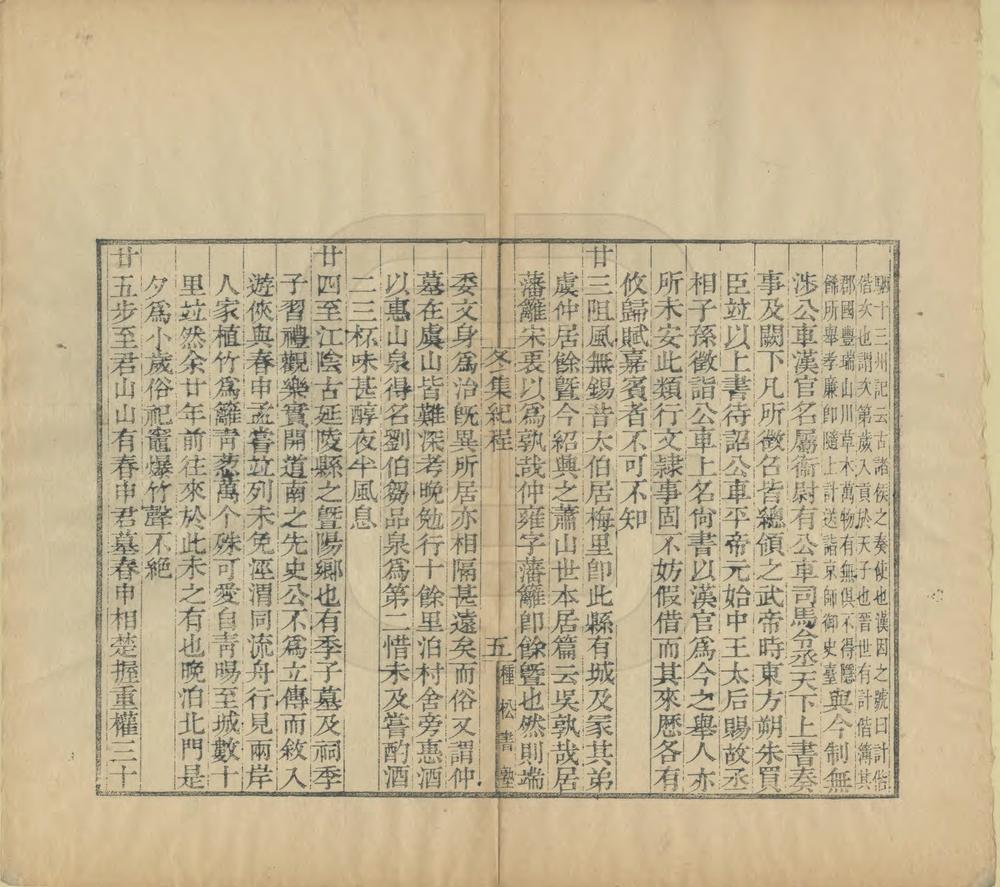 駰十三州記云古諸侯之奏使也漢因之號曰計偕
偕次也謂次第歲入貢於天子也晋世有計偕簿其
郡國豐瑞山川草木萬物有無俱不得隱
餘所舉孝廉即隨上計送詣京師御史臺與今制無
涉公車漢官名屬衞尉有公車司馬令丞天下上書奏
事及闕下凡所徵召皆總領之武帝時東方朔朱買
臣竝以上書待詔公車平帝元始中王太后賜故丞
相子孫徵詣公車上名尚書以漢官爲今之舉人亦
所未安此類行文隷事固不妨假借而其來歴各有
攸歸賦嘉賓者不可不知
廿三阻風無錫昔太伯居梅里卽此縣有城及冢其弟
虞仲居餘暨今紹興之蕭山世本居篇云吳孰哉居
藩籬宋衷以爲孰哉仲雍字藩籬卽餘暨也然則端
冬集紀程
五
種松書塾
委文身爲治旣異所居亦相隔甚遠矣而俗又謂仲
墓在虞山皆難深考晚勉行十餘里泊村舍旁惠酒
以惠山泉得名劉伯芻品泉爲第二惜未及嘗酌酒
二三杯味甚醇夜半風息
廿四至江陰古延陵縣之暨陽鄉也有季子墓及祠季
子習禮觀樂實開道南之先史公不爲立傳而敘入
遊俠與春申孟嘗竝列未免涇渭同流舟行見兩岸
人家植竹爲籬靑葱萬个殊可愛自靑暘至城數十
里竝然余廿年前往來於此未之有也晚泊北門是
夕爲小歲俗祀竈爆竹聲不絕
廿五步至君山山有春申君墓春申相楚握重權三十